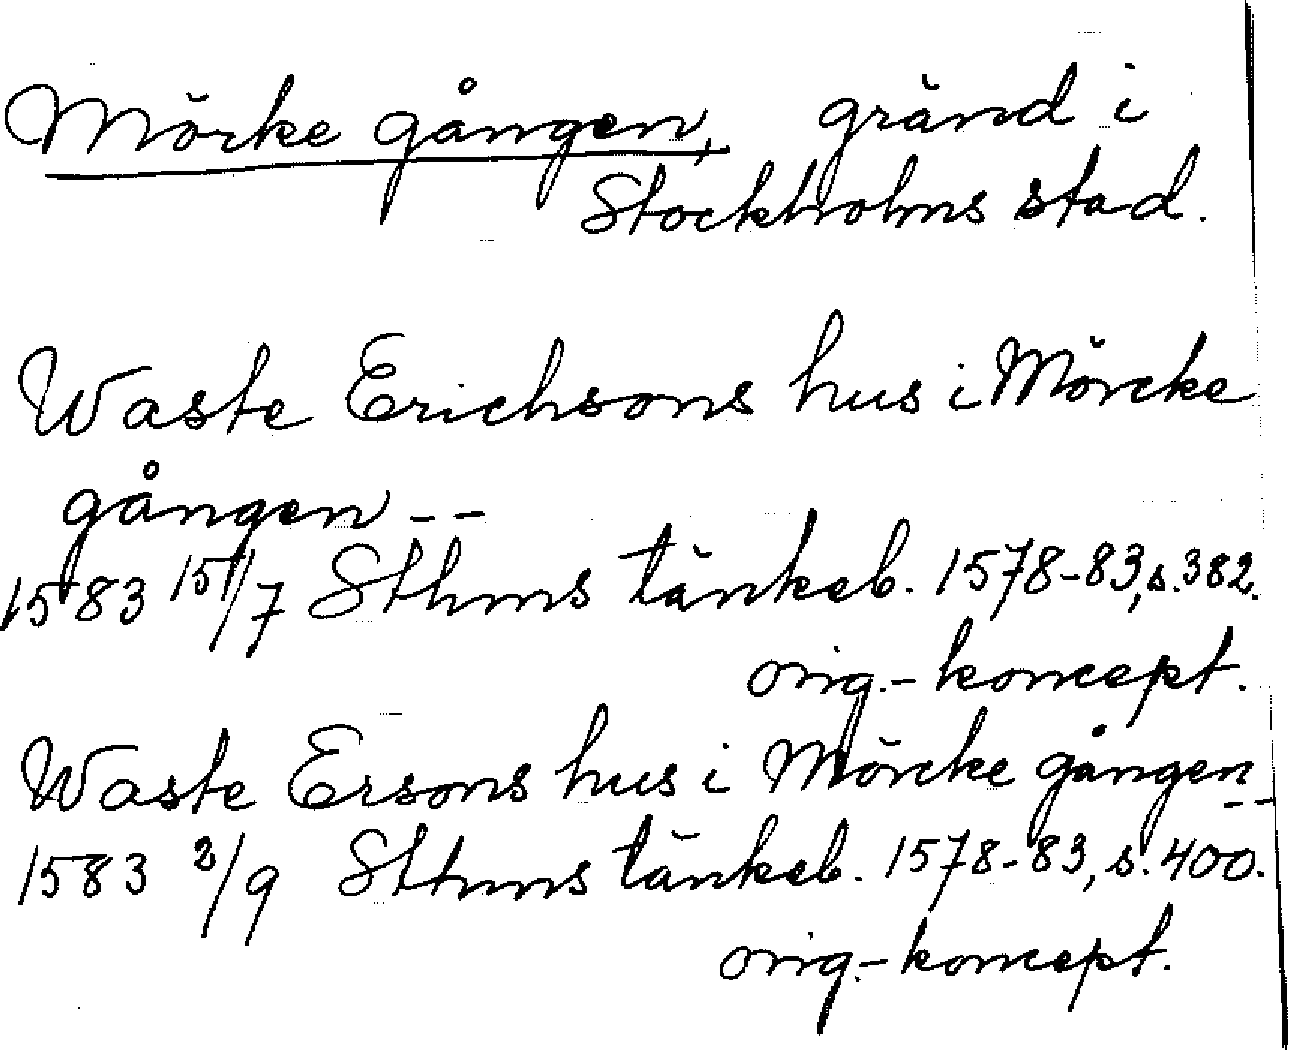 Mörke gången, gränd i
Stockholms stad.
Waste Erichsons hus i Mörcke
gången --
1583 15/7 Sthms tänkeb. 1578-83, s. 382.
orig.- koncept.
Waste Ersons hus i Mörcke gången --
1583 2/9 Sthms tänkeb. 1578-83, s. 400.
orig.- koncept.